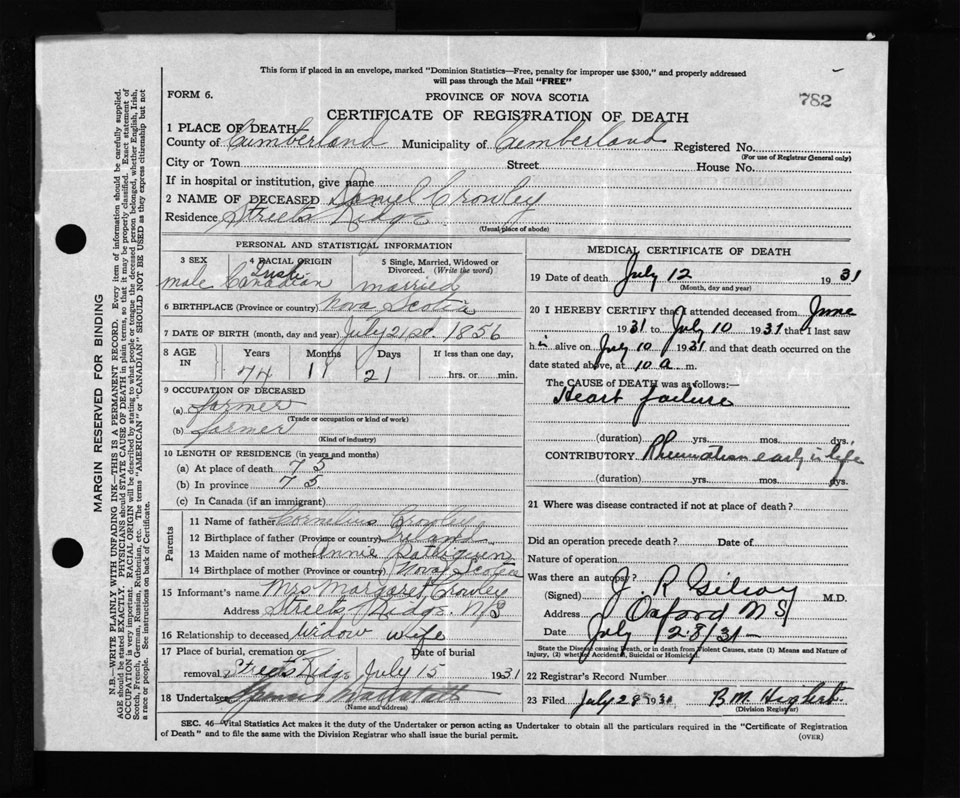 This form if placed in an envelope, marked "Dominion Statistics—Free, penalty for improper use $300," and properly addressed
will pass through the Mail "FREE"
FORM 6.
PROVINCE OF NOVA SCOTIA
782
CERTIFICATE OF REGISTRATION OF DEATH
1 PLACE OF DEATH
County of Cumberland Municipality of Cumberland Registered No.
(For use of Registrar General only)
City or Town Street House No.
If in hospital or institution, give name
2 NAME OF DECEASED Daniel Crowley
Residence Streets Ridge
(Usual place of abode)
PERSONAL AND STATISTICAL INFORMATION
3 SEX 4 RACIAL ORIGIN 5 Single, Married, Widowed or Divorced. (Write the word)
male Irish Canadian married
6 BIRTHPLACE (Province or country) Nova Scotia
7 DATE OF BIRTH (month, day and year) July 21st 1856
8 AGE IN Years Months Days If less than one day,
74 11 21 hrs. or min.
9 OCCUPATION OF DECEASED
(a) farmer
(Trade or occupation or kind of work)
(b) farmer
(Kind of industry)
10 LENGTH OF RESIDENCE (in years and months)
(a) At place of death 75
(b) In province 75
(c) In Canada (if an immigrant)
Parents
11 Name of father Cornelius Crowley
12 Birthplace of father (Province or country) Ireland
13 Maiden name of mother Annie
14 Birthplace of mother (Province or country) Nova Scotia
15 Informant's name Mrs Margaret Crowley
Address Streets Ridge. N.S
16 Relationship to deceased Widow wife
17 Place of burial, cremation or removal Date of burial
Streets Ridge July 15 1931
18 Undertaker
(Name and address)
MEDICAL CERTIFICATE OF DEATH
19 Date of death July 12 1931
(Month, day and year)
20 I HEREBY CERTIFY that I attended deceased from June
1931 to July 10 1931 that I last saw
h alive on July 10 1931 and that death occurred on the
date stated above, at 10 a m.
The CAUSE of DEATH was as follows:—
Heart failure
(duration) yrs. mos. dys.
CONTRIBUTORY Rheumatism early in life
(duration) yrs. mos. dys.
21 Where was disease contracted if not at place of death?
Did an operation precede death? Date of
Nature of operation
Was there an autopsy?
(Signed) J. R Gilroy M.D.
Address Oxford N S
Date July 28/31
State the Disease causing Death, or in death from Violent Causes, state (1) Means and Nature of
Injury, (2) whether Accidental, Suicidal or Homicidal.
22 Registrar's Record Number
23 Filed July 28 193
(Division Registrar)
SEC. 46—Vital Statistics Act makes it the duty of the Undertaker or person acting as Undertaker to obtain all the particulars required in the "Certificate of Registration
of Death" and to file the same with the Division Registrar who shall issue the burial permit.
(OVER)
MARGIN RESERVED FOR BINDING
N.B.—WRITE PLAINLY WITH UNFADING INK—THIS IS A PERMANENT RECORD. Every item of information should be carefully supplied.
AGE should be stated EXACTLY. PHYSICIANS should STATE CAUSE OF DEATH in plain terms, so that it may be properly classified. Exact statement of
OCCUPATION is very important. RACIAL ORIGIN will be described by stating to what people or tongue the deceased person belonged, whether English, Irish,
Scotch, French, German, Russian, Ruthenian, etc. The terms "AMERICAN" or "CANADIAN" SHOULD NOT BE USED as they express citizenship but not
a race or people. See instructions on back of Certificate.